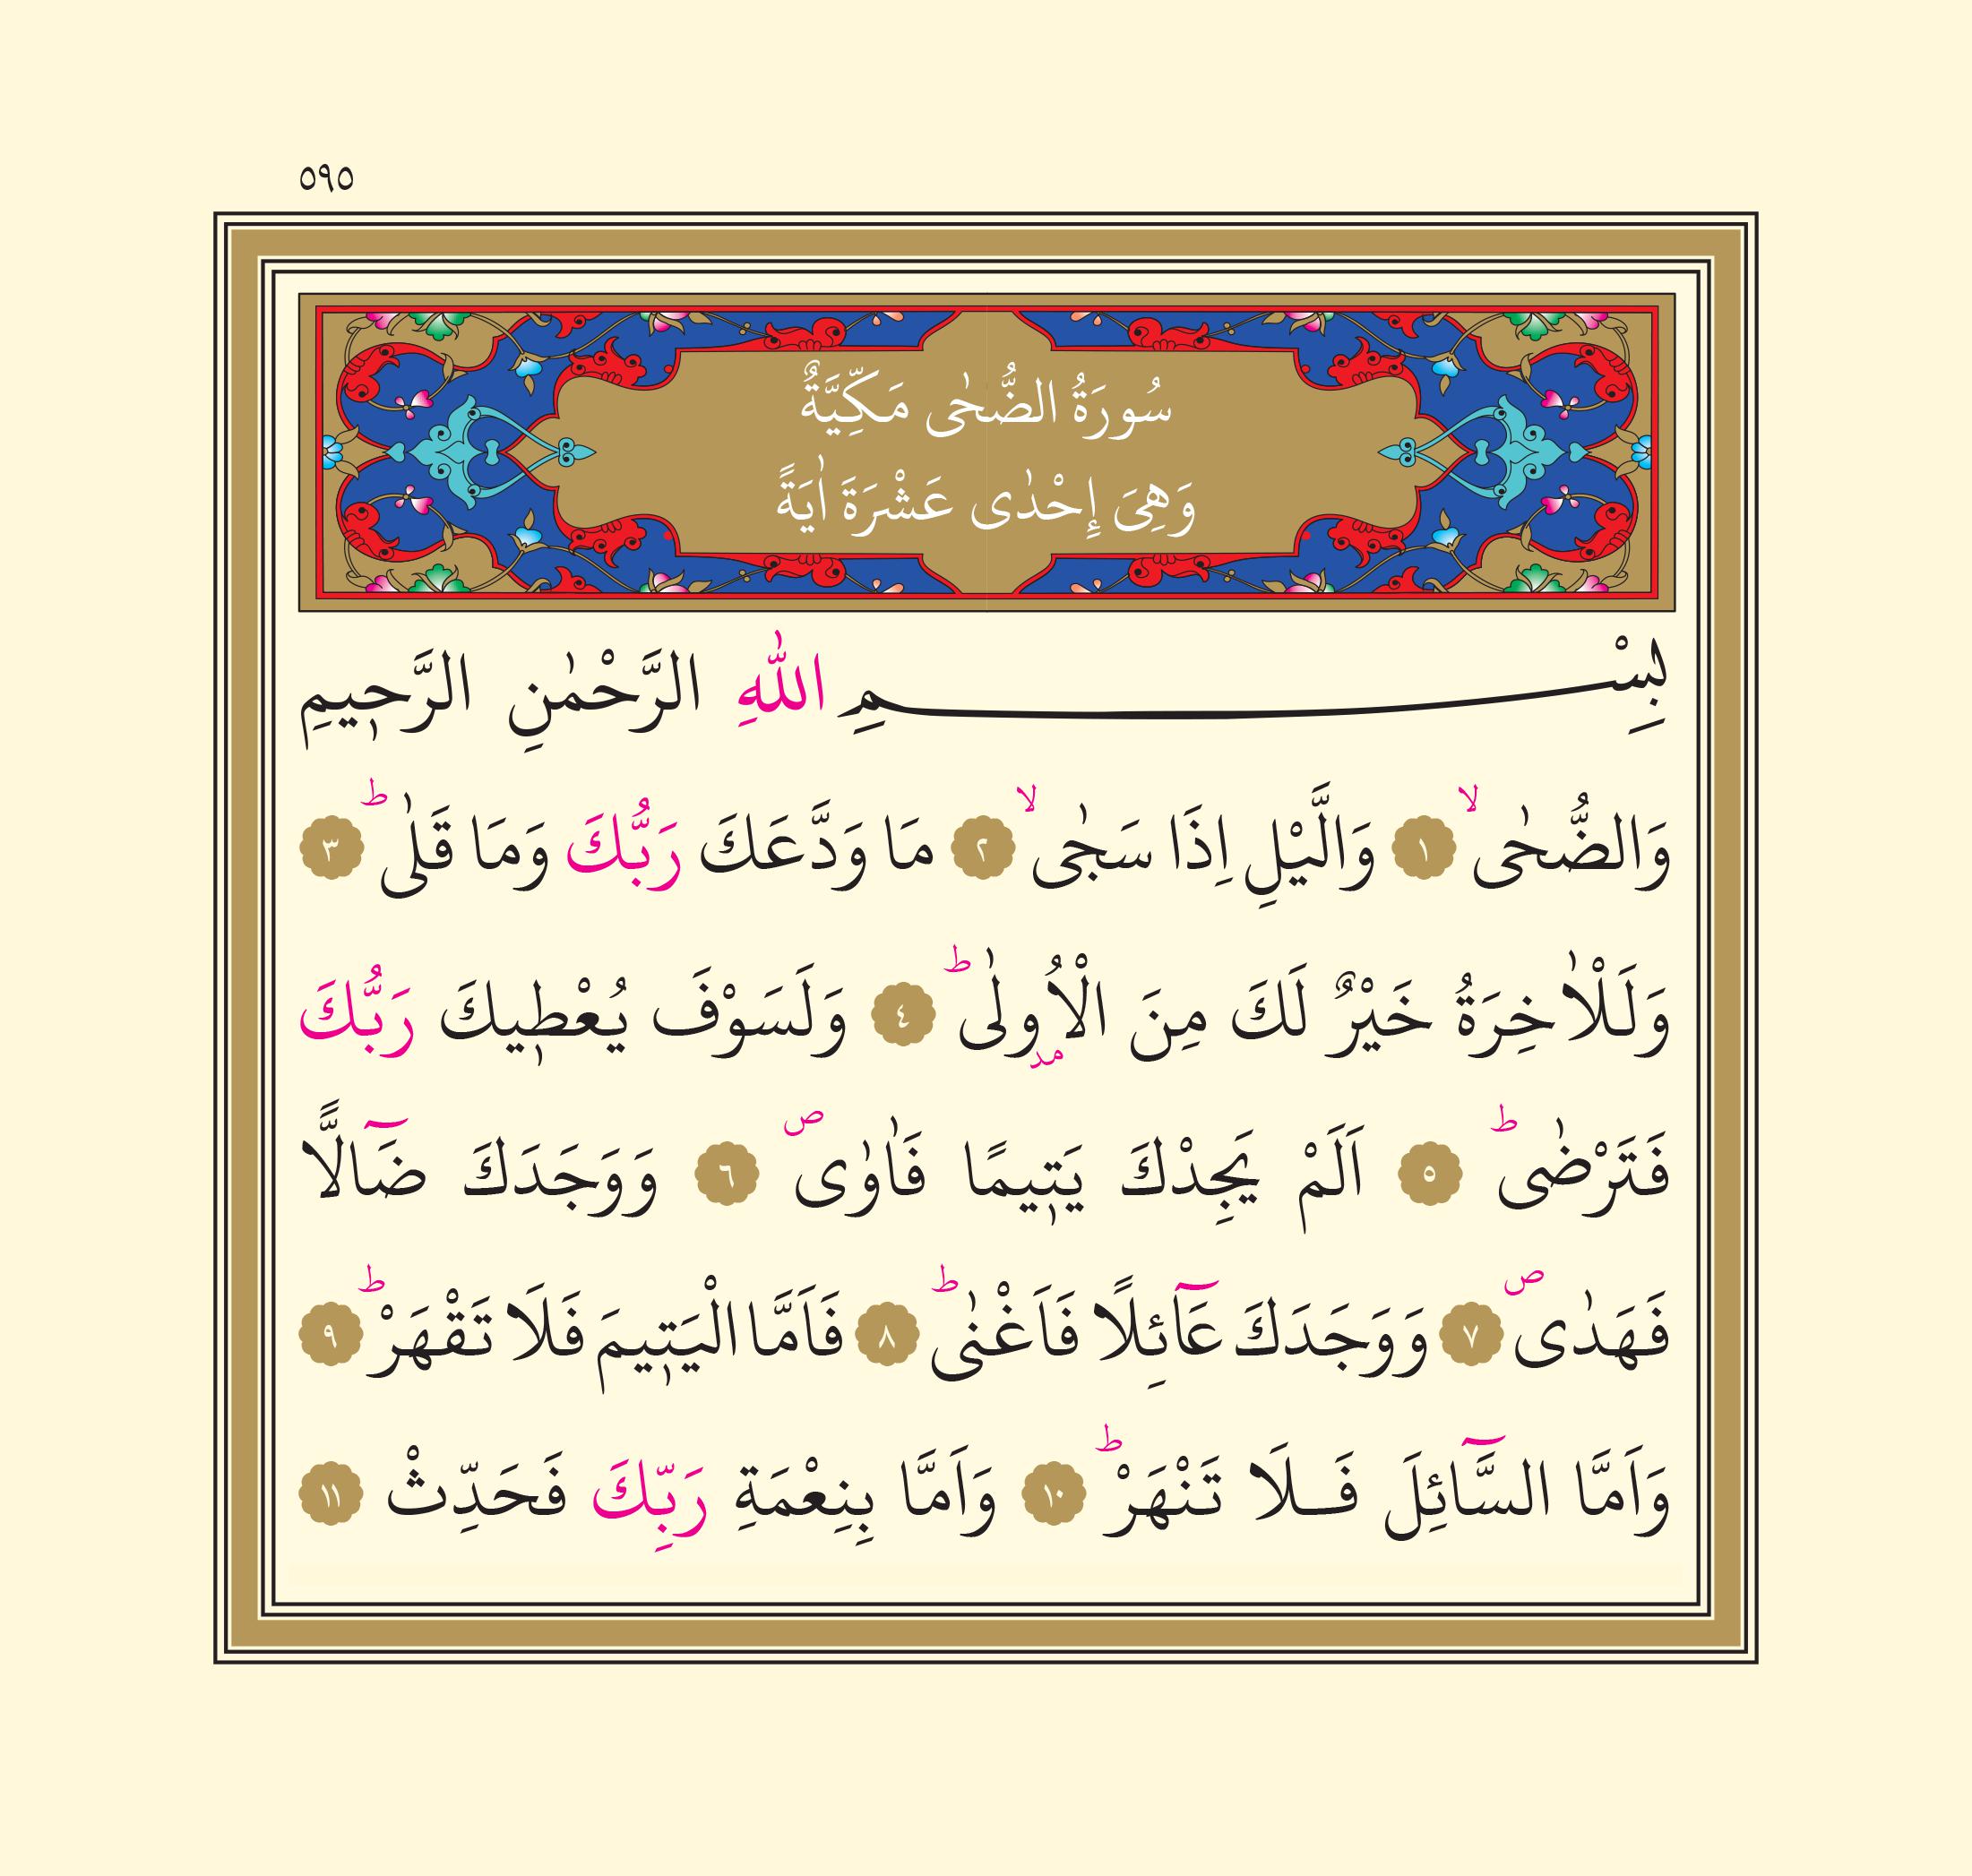 ٥٩٥
سُورَةُ الضُّحٰى مَكِّيَّةٌ
وَهِىَ إِحْدٰى عَشْرَةَ اٰيَةً
بِسْمِ اللّٰهِ الرَّحْمٰنِ الرَّحٖيمِ
وَالضُّحٰىۙ ١ وَالَّيْلِ اِذَا سَجٰىۙ ٢ مَا وَدَّعَكَ رَبُّكَ وَمَا قَلٰىؕ ٣
وَلَلْاٰخِرَةُ خَيْرٌ لَكَ مِنَ الْاُو۫لٰىؕ ٤ وَلَسَوْفَ يُعْطٖيكَ رَبُّكَ
فَتَرْضٰىؕ ٥ اَلَمْ يَجِدْكَ يَتٖيمًا فَاٰوٰىࣕ ٦ وَوَجَدَكَ ضَٓالًّا
فَهَدٰىࣕ ٧ وَوَجَدَكَ عَٓائِلًا فَاَغْنٰىؕ ٨ فَاَمَّا الْيَتٖيمَ فَلَا تَقْهَرْؕ ٩
وَاَمَّا السَّٓائِلَ فَلَا تَنْهَرْؕ ١٠ وَاَمَّا بِنِعْمَةِ رَبِّكَ فَحَدِّثْ ١١